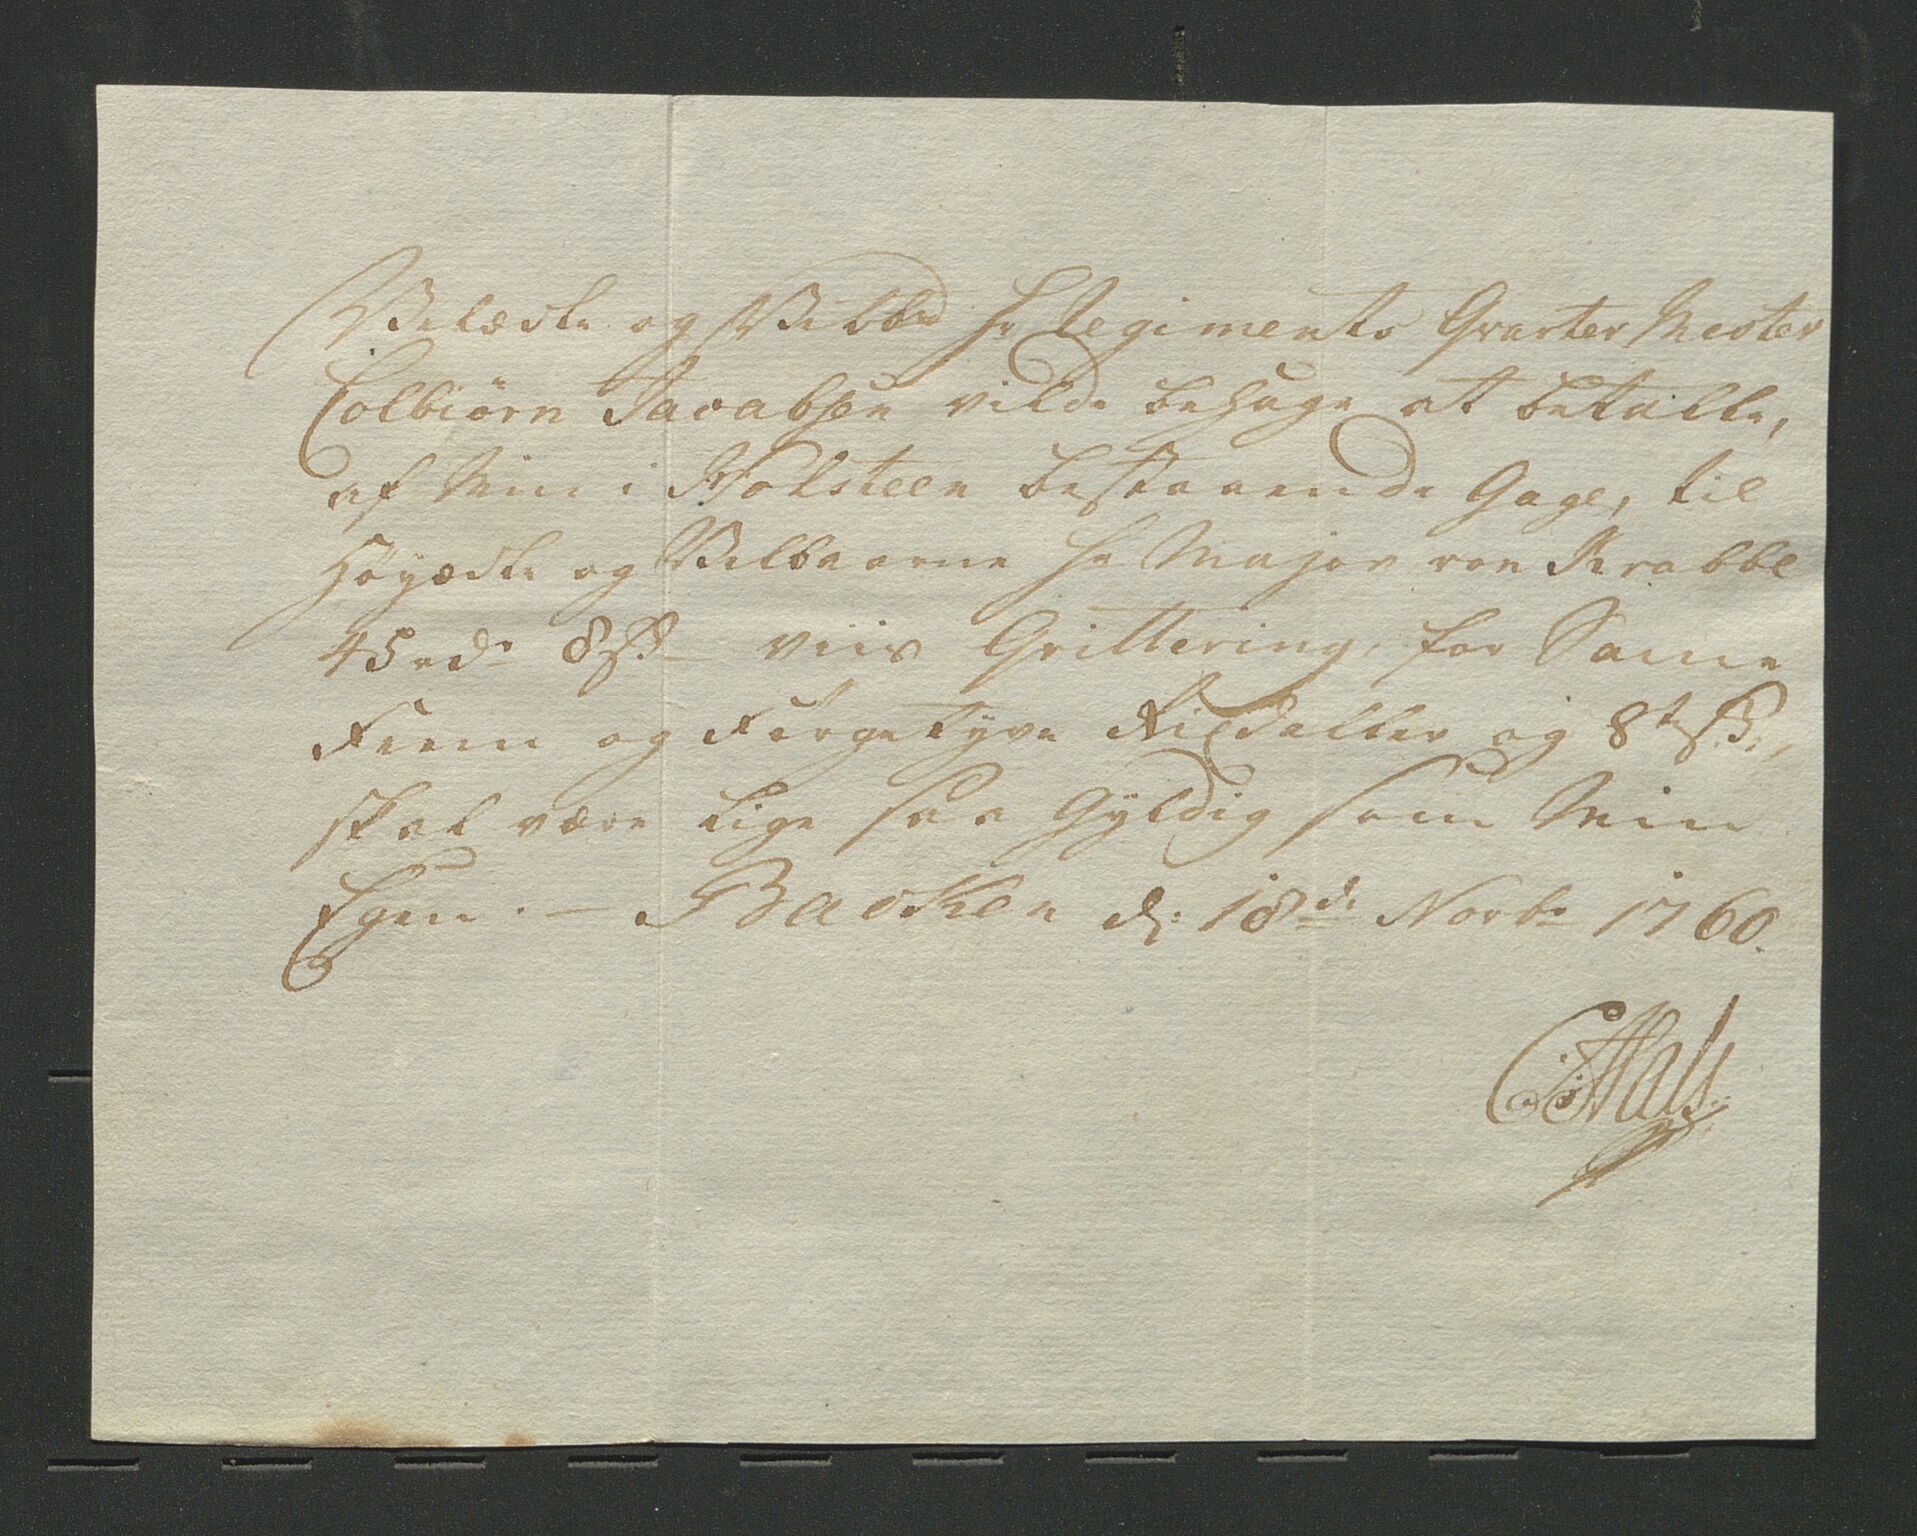 Velædle og Velbd hr Regiments Qvarter Mester
Colbiørn Jacobsen vilde behage at betalle,
af Min i Holsteen bestaaende Gage, til
Høyædle og Velbaarne hr Major von Krabbe
45 rdr 8 ß – viis Qvittering, for Same
Feem og Førgetyve Rixdaller og 8te ß.,
skal være Lige saa Gyldig som Min
Egen. – Backen d: 18de Novbr 1760.